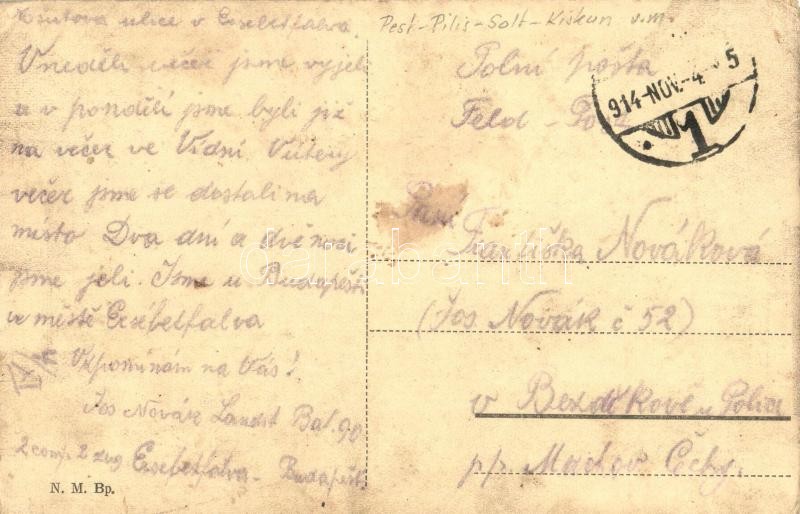 Košutova ulice v Erzsebetfalva.
V neděli večer jsme vyjeli
a v pondělí jsme byli již
na večer ve Vídni. V úterý
večer jsme se dostali na
místo Dva dni a dvě noci
jsme jeli. Jsme u Budapešti
ve městě Erzsébetfalva
Vzpomínám na Vás!
Jos Novák Landst Bat. 90
2 comp. 2 zug Erzsebetfalva - Budapešt
N. M. Bp.
Pest-Pilis-Solt-Kiskun v.m.
914-NOV.-4 5
1
Polní pošta
Feld-Post
Paní
Františka Nováková
(Jos Novák č 52)
v Bezděkově u Police
pp. Machov Čechy.
darabanth